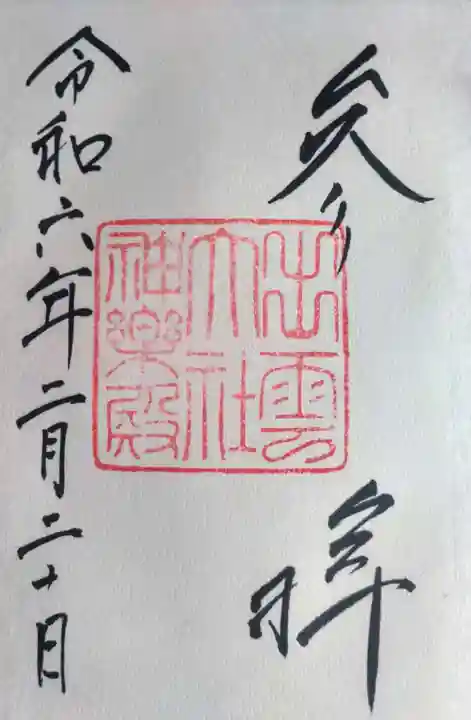 参拝
出雲
大社
神楽殿
令和六年二月二十日